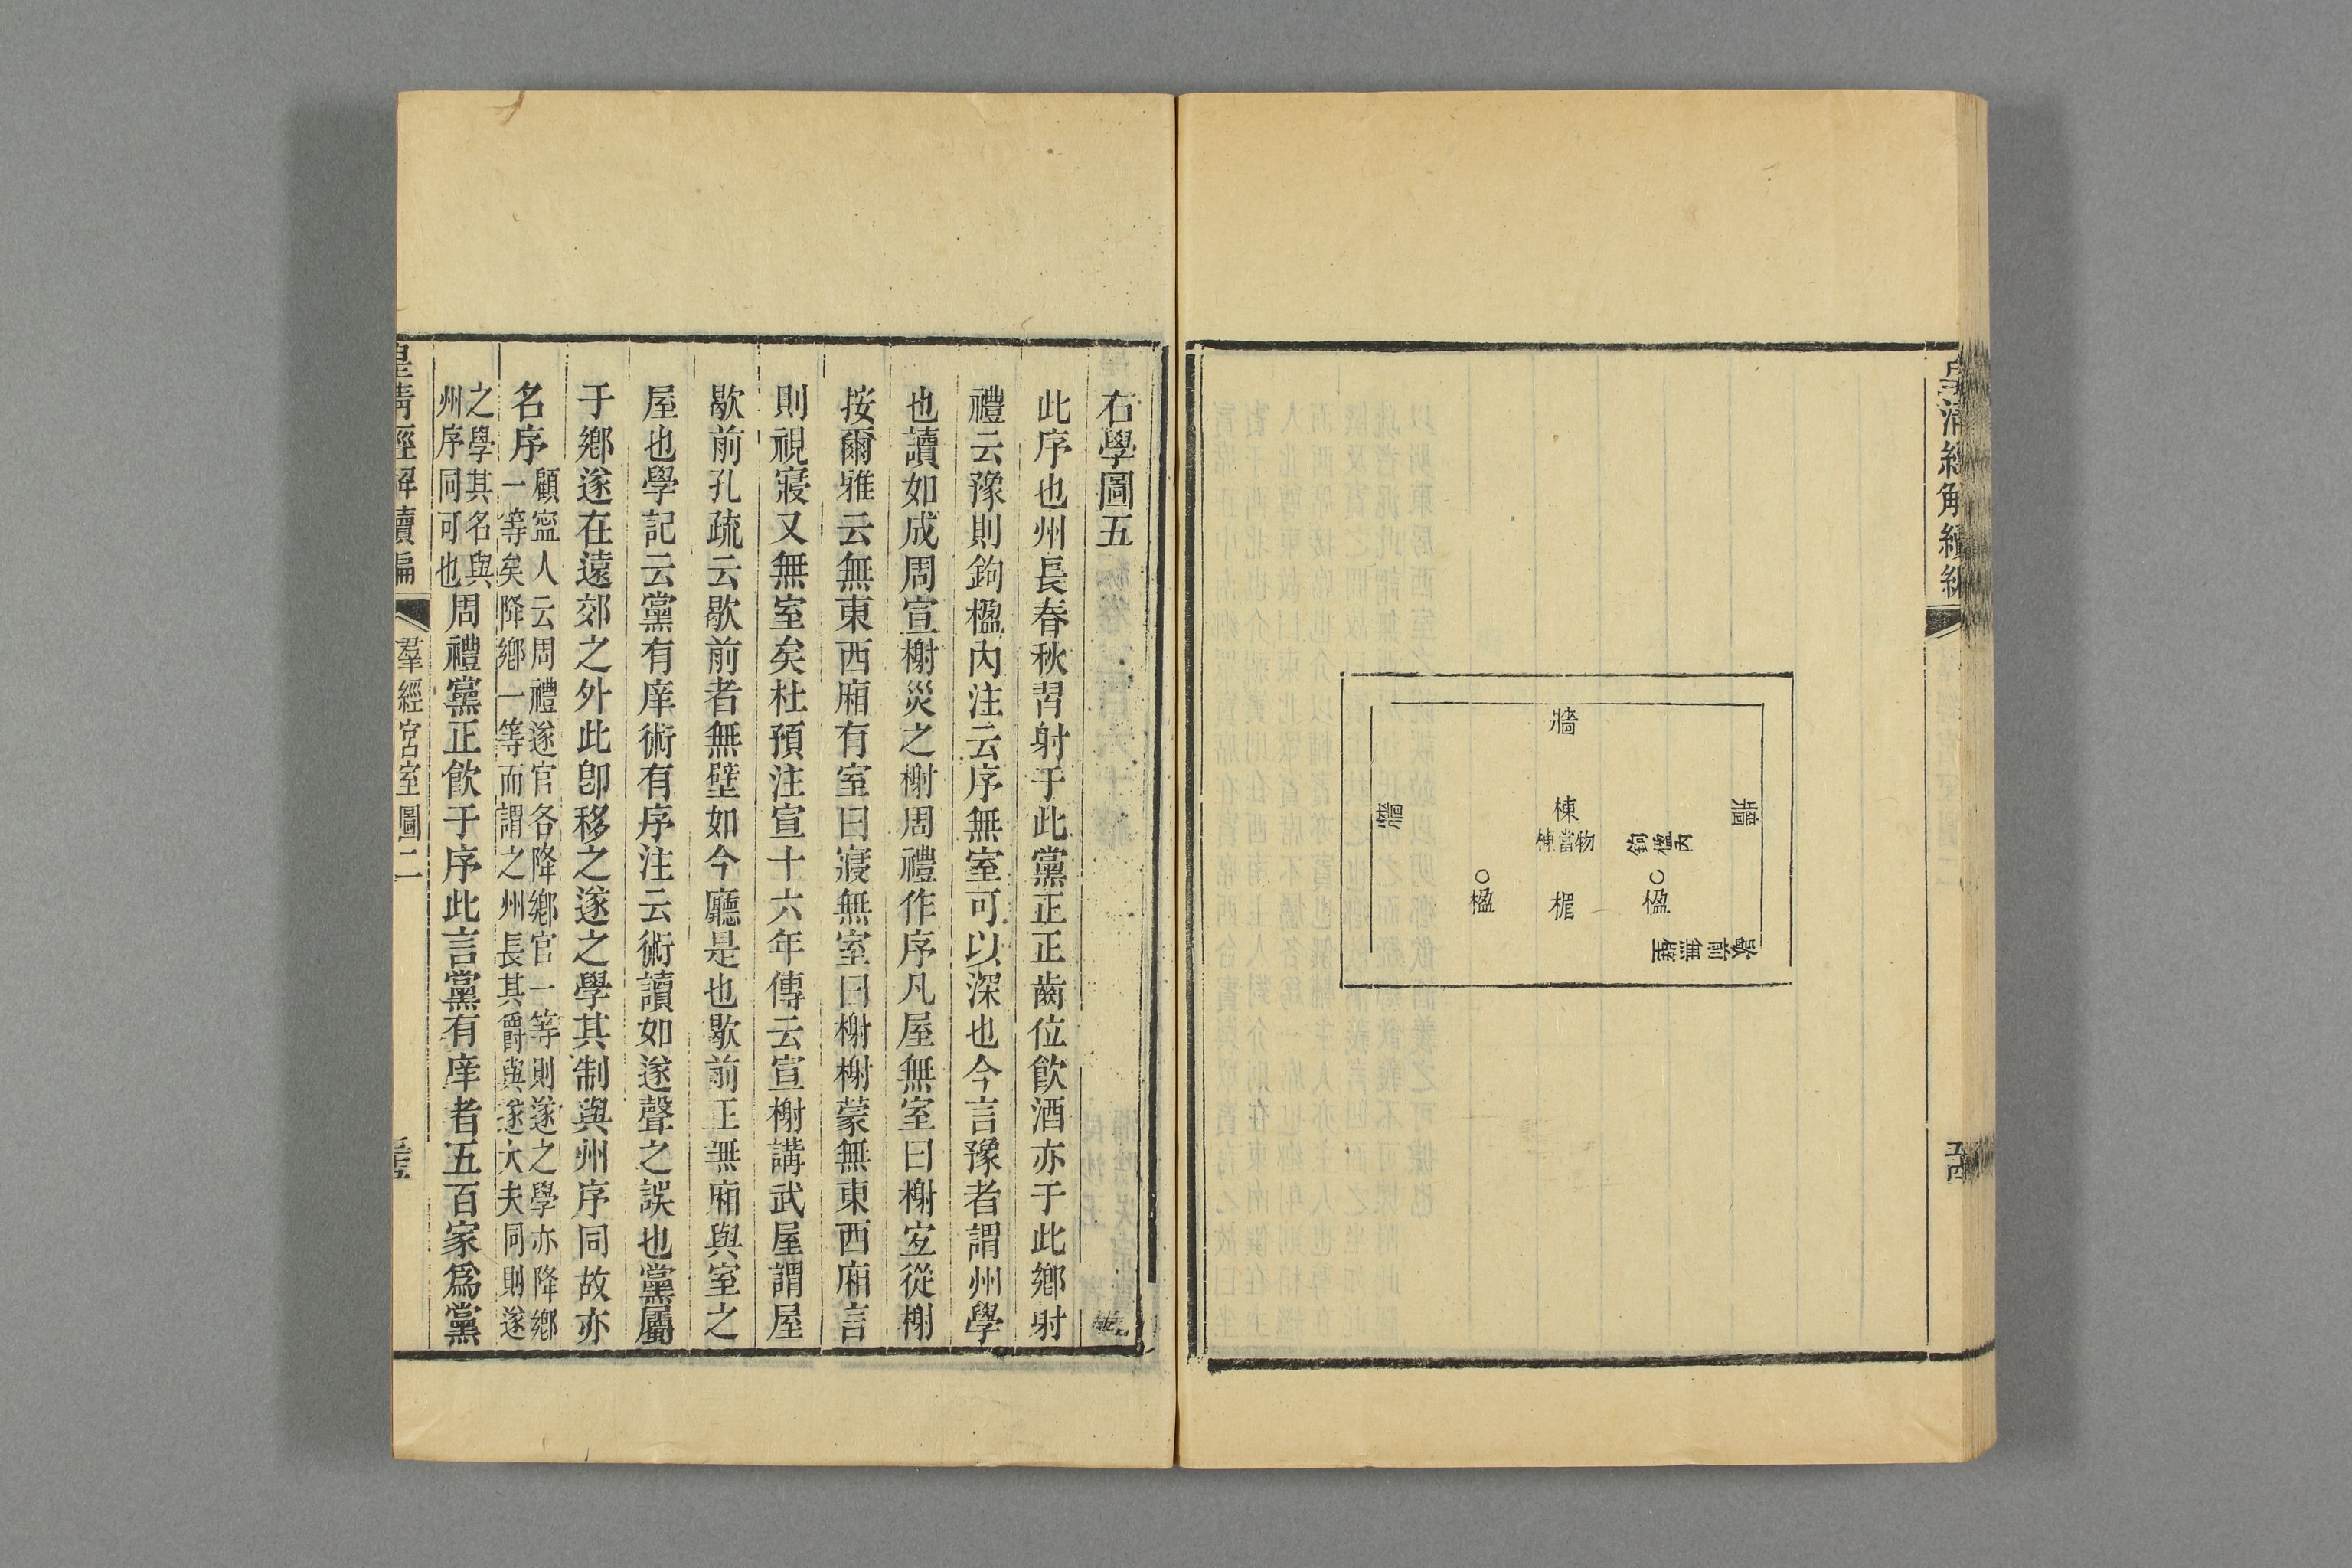 皇清經解續編
五十四
牆
牆
牆
棟
物當棟
鉤楹內
楹
楣
楹
前無
右學圖五
此序也州長春秋習射于此黨正正齒位飲酒亦于此鄉射
禮云豫則鉤楹內注云序無室可以深也今言豫者謂州學
也讀如成周宣榭災之榭周禮作序凡屋無室曰榭宐從榭
按爾雅云無東西廂有室曰寢無室曰榭榭蒙無東西廂言
則視寢又無室矣杜預注宣十六年傳云宣榭講武屋謂屋
歇前孔疏云歇前者無壁如今廳是也歇前正無廂與室之
屋也學記云黨有庠術有序注云術讀如遂聲之誤也黨屬
于鄉遂在遠郊之外此卽移之遂之學其制與州序同故亦
名序顧寍人云周禮遂官各降鄉官一等則遂之學亦降鄉
一等矣降鄉一等而謂之州長其爵與遂大夫同則遂
之學其名與
州序同可也周禮黨正飲于序此言黨有庠者五百家爲黨
皇清經解續編
羣經宮室圖二